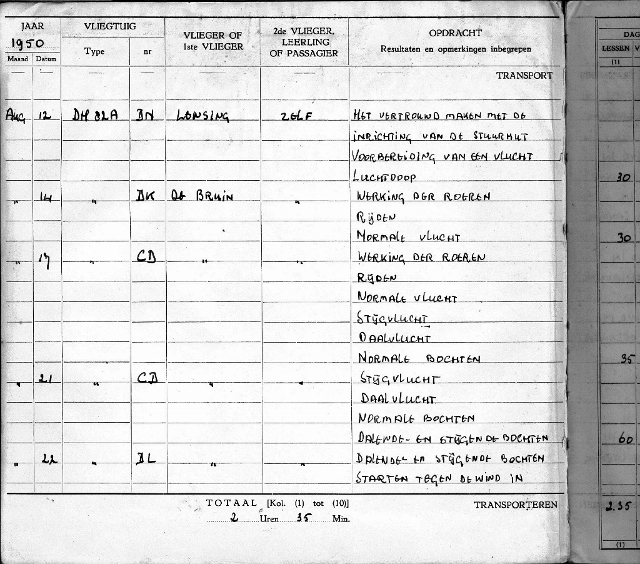 JAAR VLIEGTUIG VLIEGER OF 1ste VLIEGER 2de VLIEGER, LEERLING OF PASSAGIER OPDRACHT Resultaten en opmerkingen inbegrepen DAG
1950 LESSEN V
Maand Datum Type nr (1)
TRANSPORT
Aug 12 DH 82A BN LENSING ZELF HET VERTROUWD MAKEN MET DE
INRICHTING VAN DE STUURHUT
VOORBEREIDING VAN EEN VLUCHT
LUCHTDOOP 30
" 14 " BK DE BRUIN " WERKING DER ROEREN
RIJDEN
NORMALE VLUCHT 30
" 17 " CD " " WERKING DER ROEREN
RIJDEN
NORMALE VLUCHT
STIJGVLUCHT
DAALVLUCHT
NORMALE BOCHTEN 35
" 21 " CD " " STIJGVLUCHT
DAALVLUCHT
NORMALE BOCHTEN
DALENDE- EN STIJGENDE BOCHTEN 60
" 22 " BL " " DALENDE- EN STIJGENDE BOCHTEN
STARTEN TEGEN DE WIND IN
TOTAAL [Kol. (1) tot (10)] TRANSPORTEREN 2.35
2 Uren 35 Min.
(1)